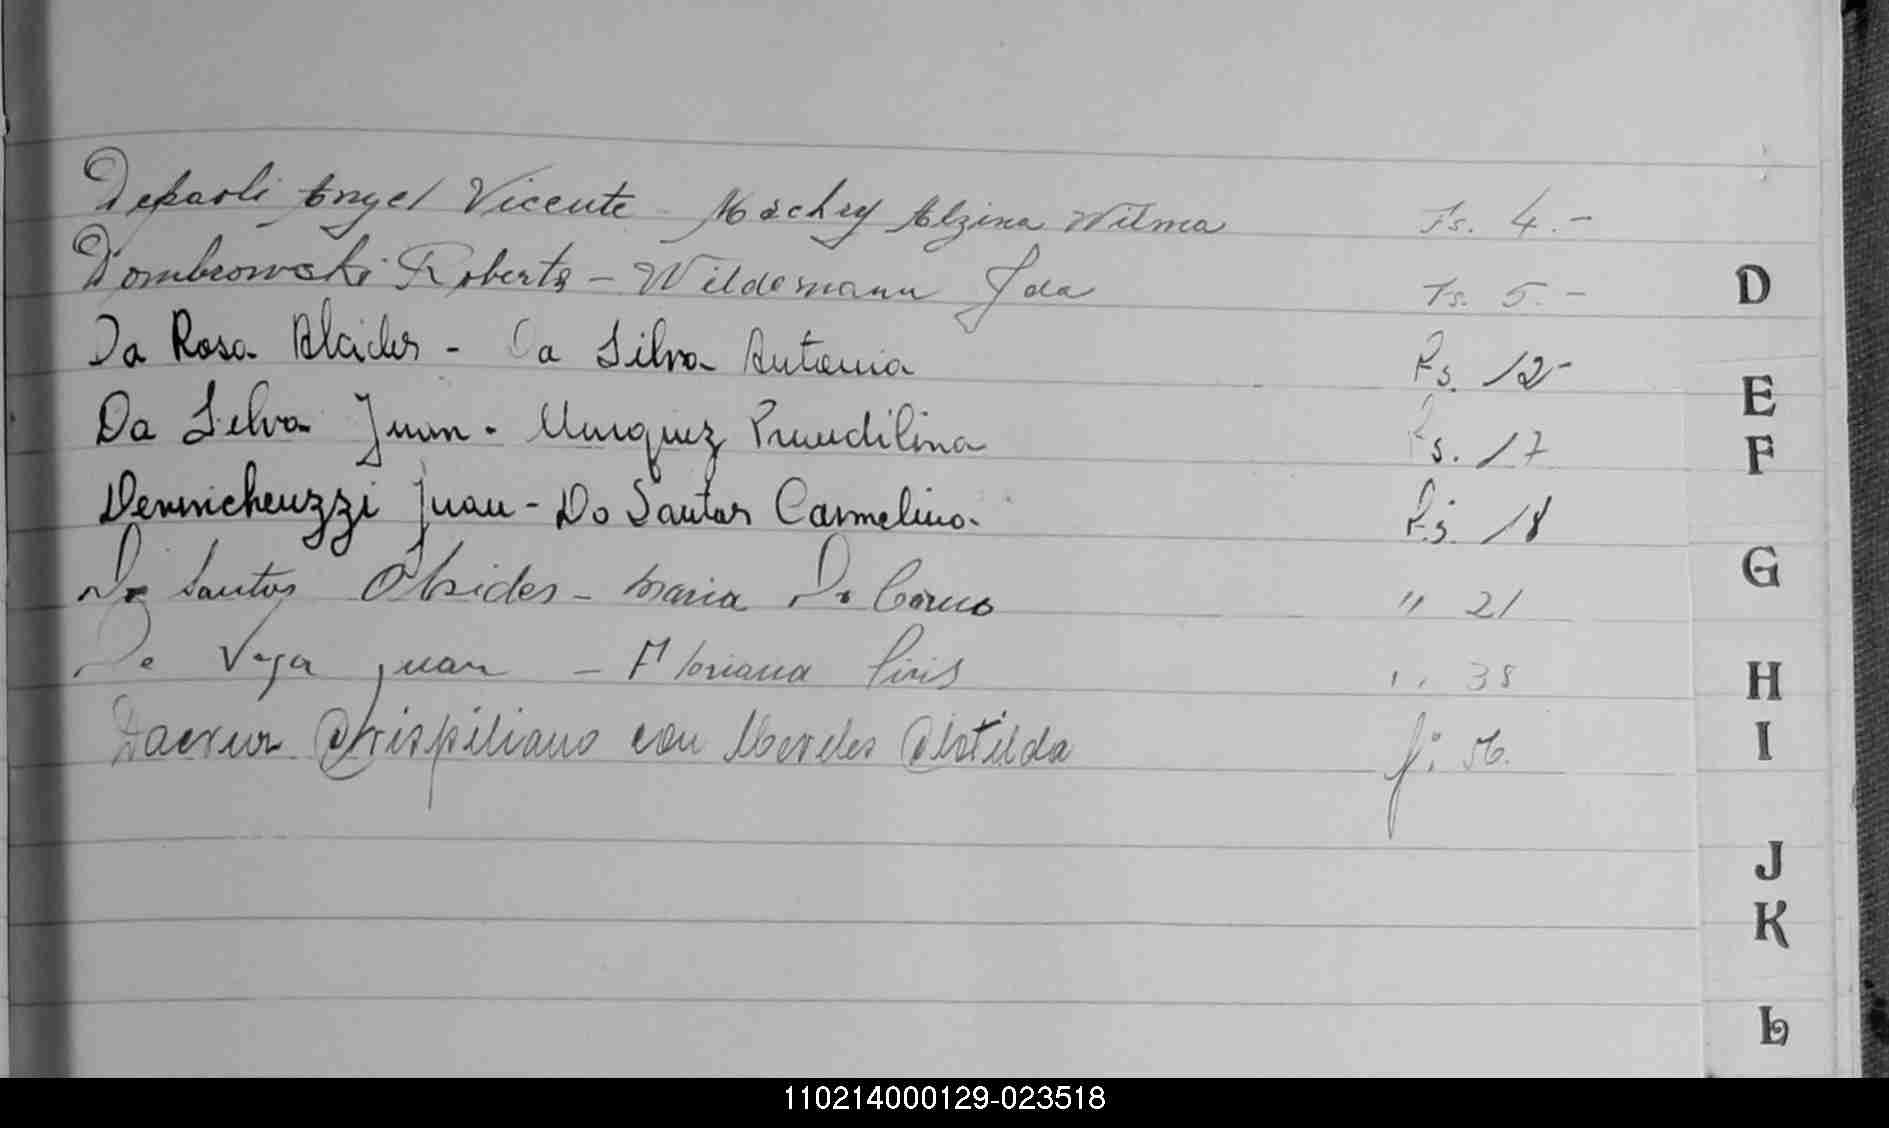 Depaoli Angel Vicente - Machry Alzira Wilma Fs. 4.-
Dombrowski Roberto - Wildemann Ida Fs. 5.-
D
Da Rosa Alcides - Da Silva Antonia Fs. 12-
E
Da Silva Juan - Marquez Fs. 17
F
Juan - Dos Santos Carmelina Fs. 18
G
Do Santos - Maria Do Carmo " 21
H
De Vega Juan - Floriana Piris " 38
I
Crispiliano con Mereles Clotilda f: 56.
J
K
L
110214000129-023518